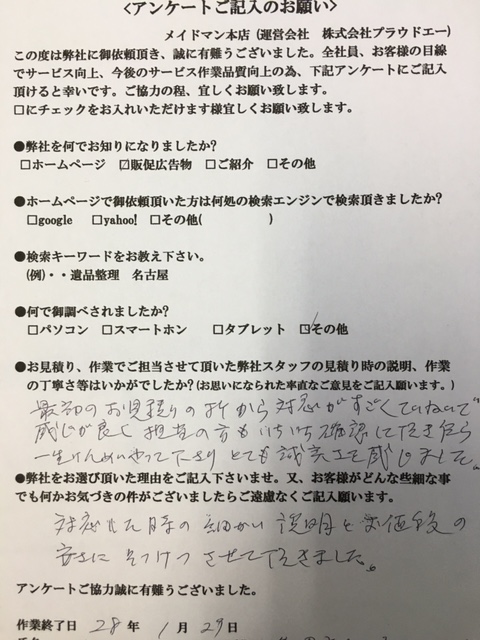 <アンケートご記入のお願い>
メイドマン本店（運営会社　株式会社プラウドエー）
この度は弊社に御依頼頂き、誠に有難うございました。全社員、お客様の目線
でサービス向上、今後のサービス作業品質向上の為、下記アンケートにご記入
頂けると幸いです。ご協力の程、宜しくお願い致します。
□にチェックをお入れいただけます様宜しくお願い致します。
●弊社を何でお知りになりましたか?
□ホームページ　☑販促広告物　□ご紹介　□その他
●ホームページで御依頼頂いた方は何処の検索エンジンで検索頂きましたか?
□google　□yahoo!　□その他(　　　　　)
●検索キーワードをお教え下さい。
(例)・・遺品整理　名古屋
●何で御調べされましたか?
□パソコン　□スマートホン　□タブレット　☑その他
●お見積り、作業でご担当させて頂いた弊社スタッフの見積り時の説明、作業
の丁寧さ等はいかがでしたか?(お思いになられた率直なご意見をご記入願います。)
最初のお見積りの折から対応がすごくていねいで
感じが良く担当の方もいちいち確認して頂き
一生けんめいやって下さり とても誠実さを感じました。
●弊社をお選び頂いた理由をご記入下さいませ。又、お客様がどんな些細な事
でも何かお気づきの件がございましたらご遠慮なくご記入願います。
対応した時の細かい説明と
安さに させて頂きました。
アンケートご協力誠に有難うございました。
作業終了日　28 年　1 月 29 日